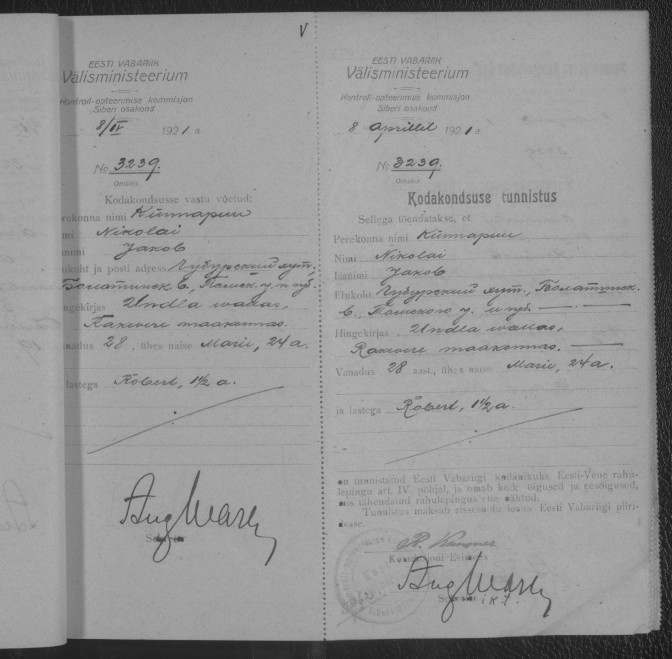 V
EESTI VABARIIK
Välisministeerium
Kontroll-opteerimise kommisjon
Siberi osakond
8/IV 1921 a.
No 3239.
Omskis
Kodakondsusse vastu võetud:
erekonna nimi Künnapuu
imi Nikolai
animi Jakob
ukoht ja posti adress Чубурский хут.
Болатинск в., Томск. у. и губ.
ingekirjas Undla wallas,
Rakvere maakonnas.
anadus 28, ühes naise Marie, 24 a.
lastega Robert, 1½ a.
Aug Warep
Sekretär
EESTI VABARIIK
Välisministeerium
Kontroll-opteerimise kommisjon
Siberi osakond
8 aprillil 1921 a.
No 3239.
Omskis
Kodakondsuse tunnistus
Sellega tõendatakse, et
Perekonna nimi Künnapuu
Nimi Nikolai
Isanimi Jakob
Elukoht Чубурский хут., Болатинск.
в., Томского у. и губ.
Hingekirjas Undla wallas,
Rakvere maakonnas.
Vanadus 28 aast., ühes naise Marie, 24 a.
ja lastega Robert, 1½ a.
on tunnistatud Eesti Vabariigi kodanikuks Eesti-Vene rahu-
lepingu art. IV põhjal, ja omab kõik õigused ja eesõigused,
mis tähendatud rahulepingus ette nähtud.
Tunnistus maksab sissesõidu loana Eesti Vabariigi piiri-
desse.
Kommisjoni Esimees
Aug Warep
Sekretär